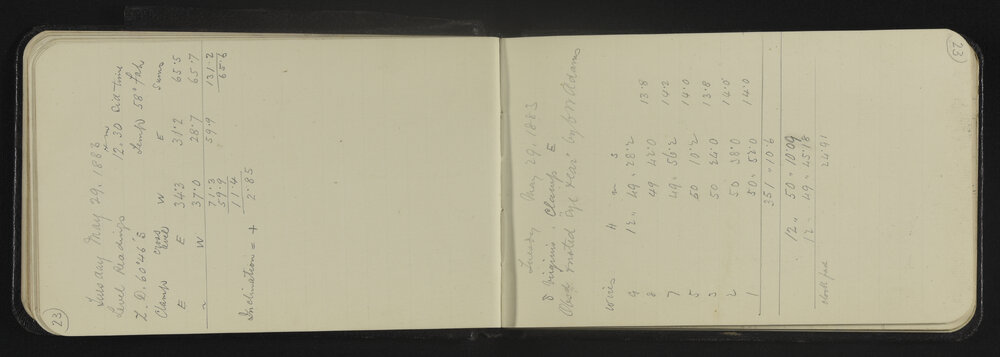 23
Tuesday May 29. 1883
Level Readings 12h 30m Sid-time
Z. D. 60°46' S Temp 58° Fah
Clamp Cross level W E Sums
E E 34.3 31.2 65.5
" W 37.0 28.7 65.7
71.3 59.9 131.2
59.9 65.6
11.4
Inclination = + 2.85
23
Tuesday May 29. 1883
δ Virginis. Clamp E
Obsd Eye by
Wires H m s
9 12 " 49 " 28.2 13.8
8 49 42.0 14.2
7 49 " 56.2 14.0
5 50 10.2 13.8
3 50 24.0 14.0
2 50 38.0 14.0
1 50 " 52.0
351 " 10.6
12 " 50 " 10.09
12 " 49 " 45.18
24.91